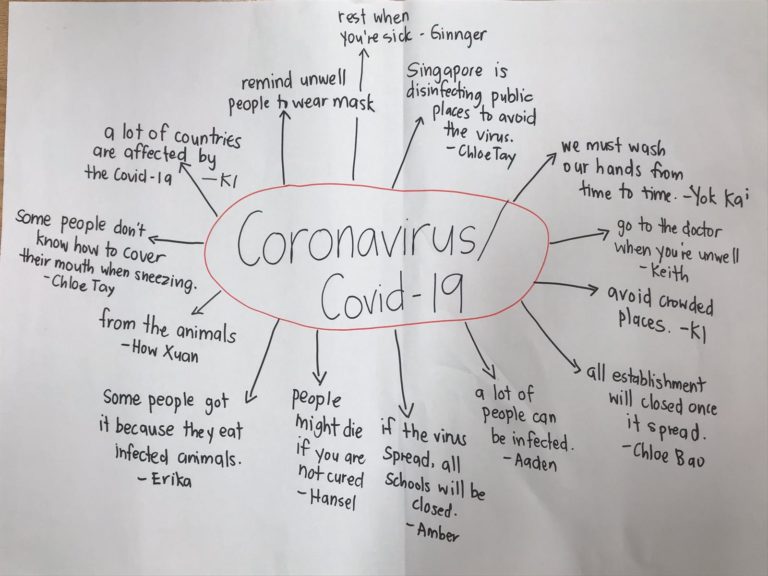 Coronavirus/
Covid-19
rest when
you're sick - Ginnger
remind unwell
people to wear mask
Singapore is
disinfecting public
places to avoid
the virus.
- Chloe Tay
we must wash
our hands from
time to time. - Yok Kai
go to the doctor
when you're unwell
- Keith
avoid crowded
places. - K1
all establishment
will closed once
it spread.
- Chloe Bao
a lot of
people can
be infected.
- Aaden
if the virus
spread, all
schools will be
closed.
- Amber
people
might die
if you are
not cured
- Hansel
Some people got
it because they eat
infected animals.
- Erika
from the animals
- How Xuan
Some people don't
know how to cover
their mouth when sneezing.
- Chloe Tay
a lot of countries
are affected by
the Covid-19 - K1